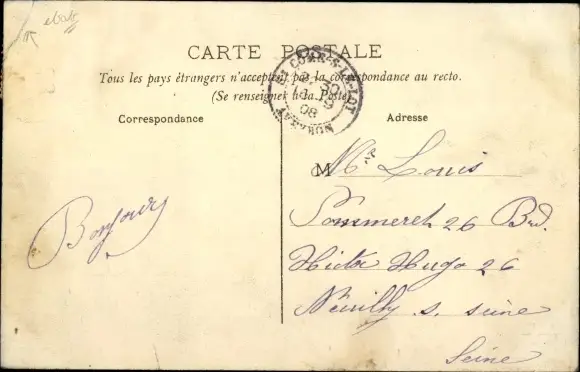 CARTE POSTALE
Tous les pays étrangers n'acceptent pas la correspondance au recto.
(Se renseigner à la Poste)
Correspondance
Adresse
Bonjour
M Mr Louis
Pommeret 26 Bvd.
Victor Hugo 26
Neuilly s. seine
Seine